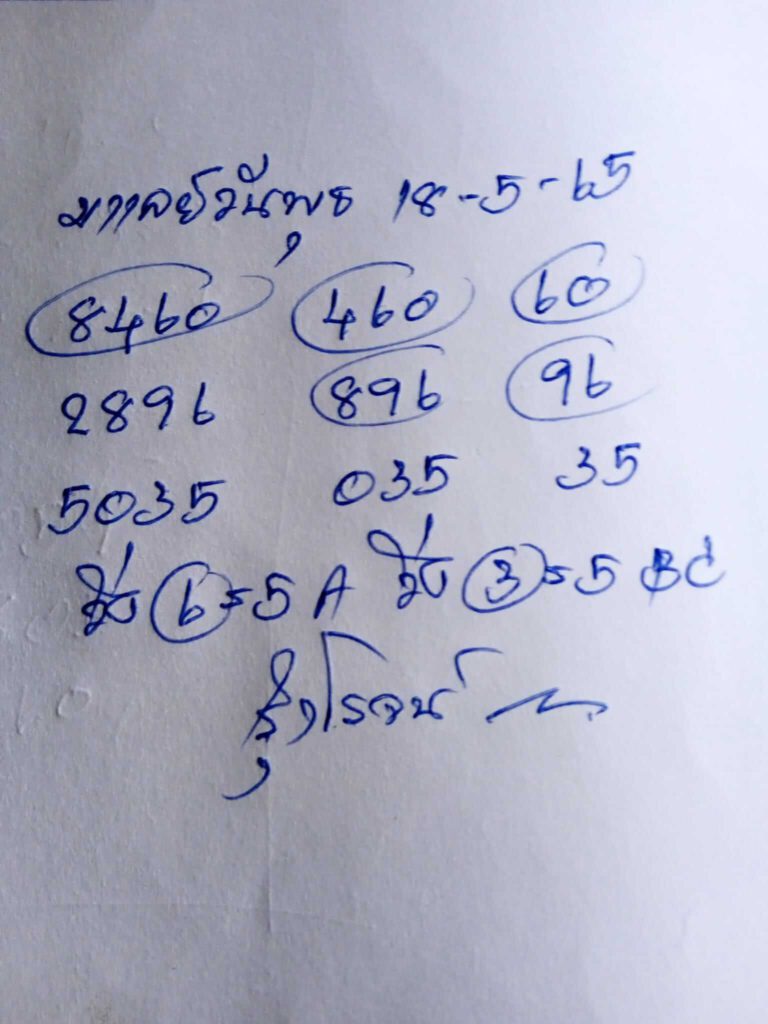 มาเลย์วันพุธ 18-5-65
8460 460 60
2896 896 96
5035 035 35
วิ่ง 6=5 A วิ่ง 3=5 BC
รุ่งโรจน์